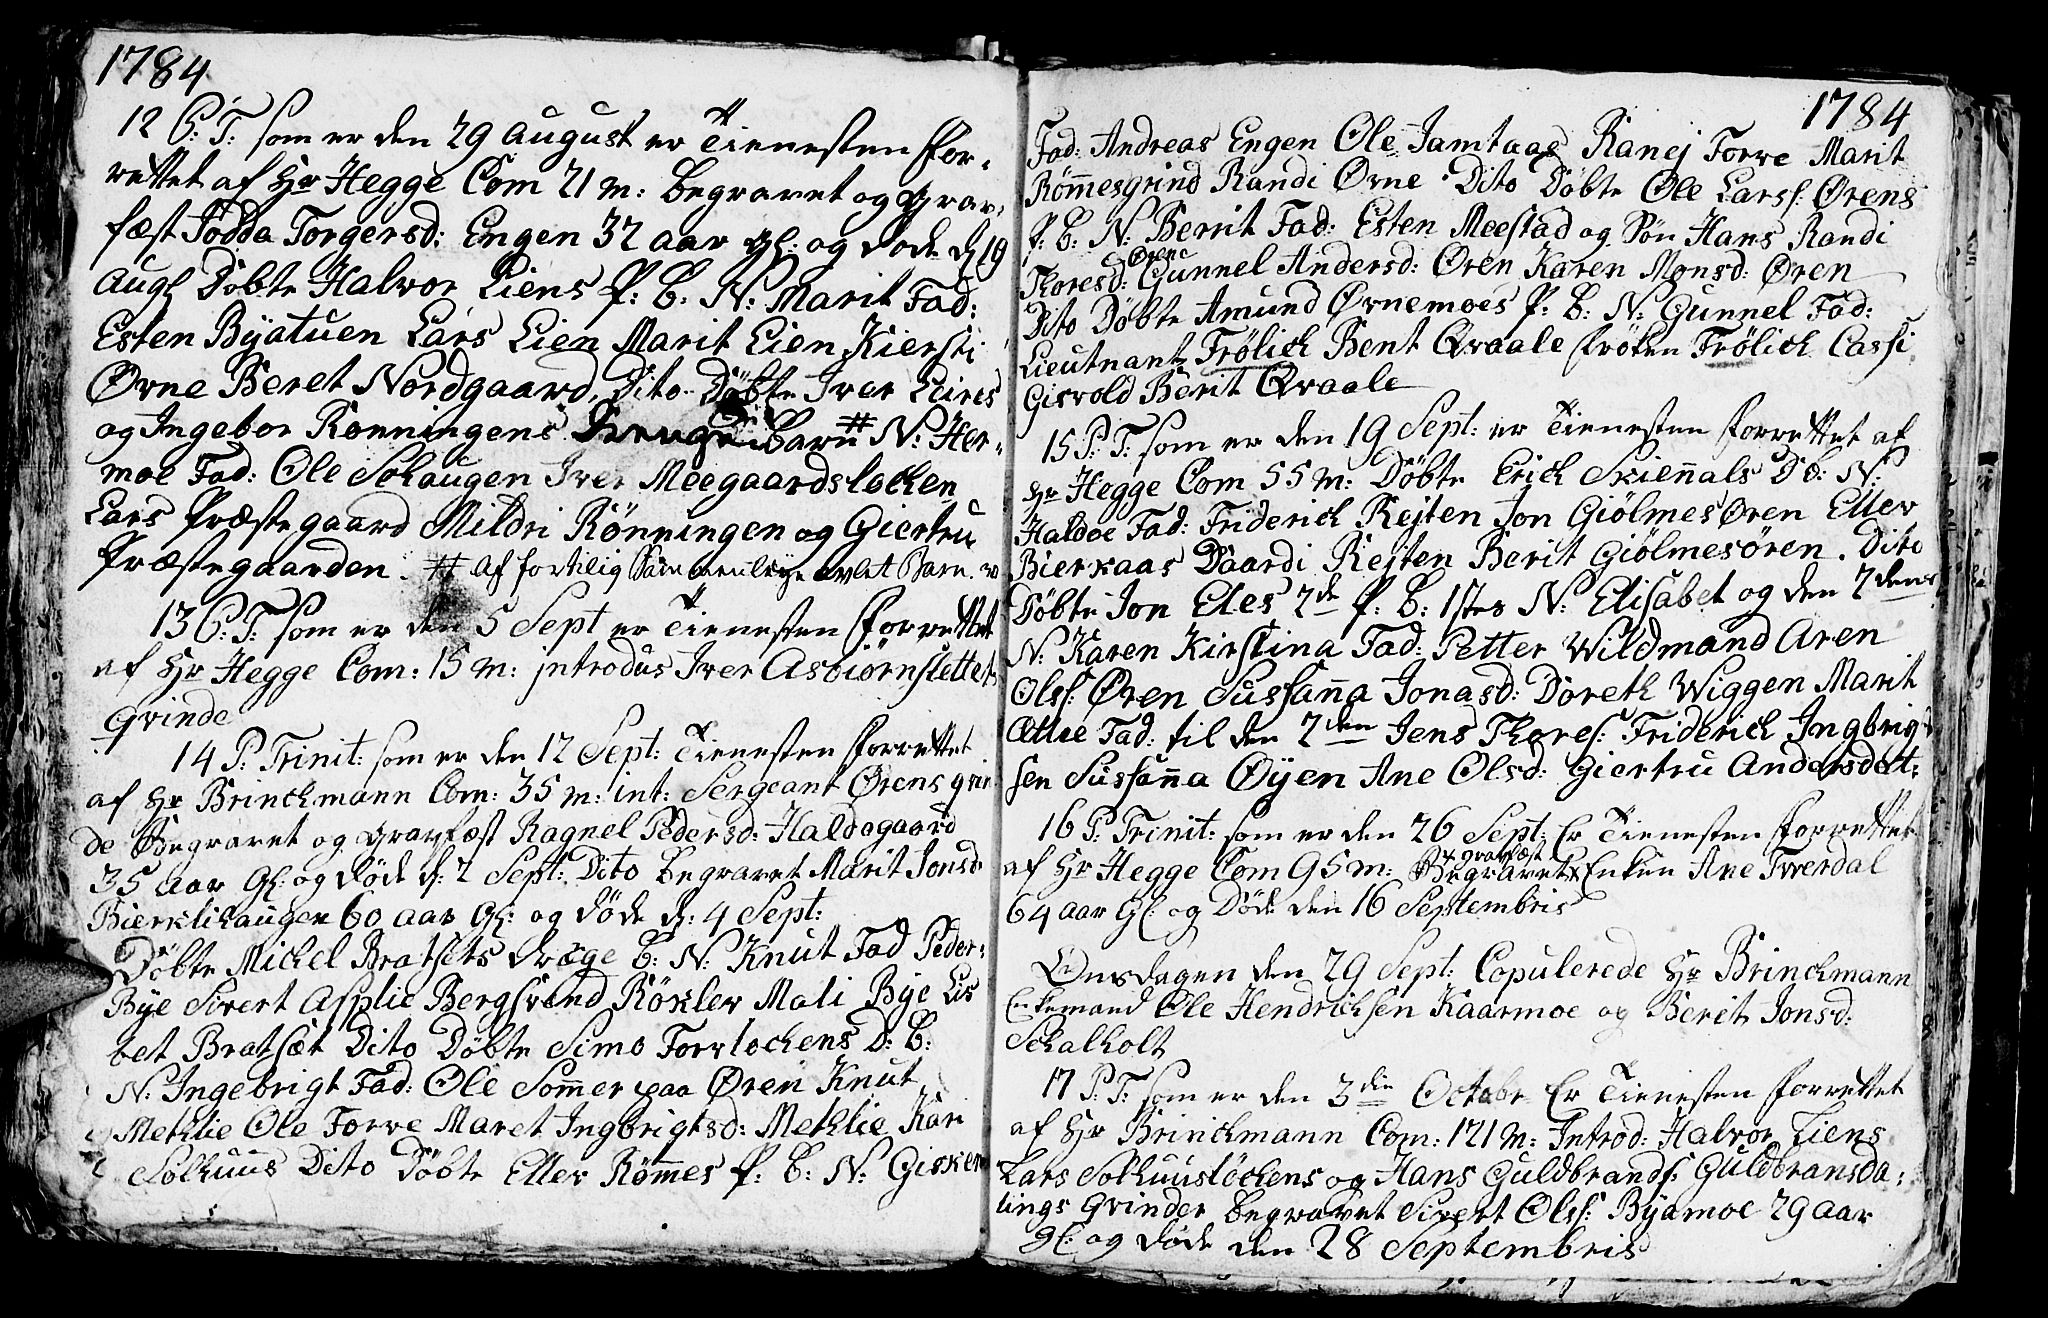 1784
12 E: T: som er den 29 August er Tienesten for-
rettet af Hr Hegge Com 21 m: begravet og grav-
fæst Todda Torgersd: Engen 32 aar gl: og døde d 19
Augl Døbte Halvor Liens P: B: N: Marit Fad:
Esten Byatuen Lars Lien Marit Lien Kiersti
Ørne Beret Nordgaard, Dito Døbte Iver Leires
og Ingebor Rønningens Barn # N: Her-
moe Fad: Ole Solhaugen Iver Meegaardsløcken
Lars Præstegaard Mildri Rönningen og Giertru
Præstegaarden. # af fortilig Sammenleye avlet Barn.
13 E: T: som er den 5 Sept er Tienesten forrettet
af Hr Hegge Com: 15 m: introdus Iver Asbiørnslettets
Qvinde
14 P: Trinit: som er den 12 Sept: Tienesten forrettet
af Hr Brinckmann Com: 35 m: int: Sergeant Ørens qvin
de Begravet og gravfæst Ragnel Pedersd: Haldogaard
35 aar gl: og døde d: 2 Sept: Dito begravet Marit Jonsd
Bierklihaugen 60 aar gl: og døde d: 4 Sept:
Døbte Michel Bratsets dræge B: N: Knut Fad Peder
Bye Sivert Asplie Bergsvend Rökler Mali Bye Lis
bet Bratsæt Dito Døbte Simo Forvlochens D: B:
N: Ingebrigt Fad: Ole Sommer paa Øren Knut
Methlie Ole Torve Maret Ingbrigtsd: Methlie Kari
Solhuus Dito Døbte Eller Römmes P: B: N: Gisken
1784
Fad: Andreas Engen Ole Jamtaas Ranej Torve Marit
Römmesgrind Randi Ørne Dito Döbte Ole Larss: Ørens
P: B: N: Berrit Fad: Esten Meestad og Søn Hans Randi
Thoresd: Ørne Gunnel Andersd: Øren Karen Monsd: Øren
Dito Döbte Amund Ørnemoes P: B: N: Gunnel Fad:
Lieutnant Frölich Bent Qvaale frøken Frölich Cassi
Gisvold Berit Qvaale
15 P: T: som er den 19 Sept: er Tienesten forrettet af
Hr Hegge Com 55 m: Døbte Erich Skiennals D: N:
Haldoe Fad: Friderich Rejten Jon Giölmesøren Eller
Bierkaas Daardi Rejten Berit Giölmesören. Dito
Döbte Jon Eles 2de P: B: 1stes N: Elisabet og den 2dens
N: Karen Kirstina Fad: Petter Wildmand Aren
Olss: Øren Sussanna Jonasd: Doreth Wiggen Marit
Fad: til den 2den Jens Thores: Friderich Ingbrigt
sen Sussanna Øyen Ane Olsd: Giertru Andersdatt:
16 P: Trinit: som er den 26 Sept: Er Tienesten forrettet
af Hr Hegge Com 95 m: Begravet & gravfæst Enken Ane Tverdal
64 aar Gl: og Døde den 16 Septembris
Onsdagen den 29 Sept: Copulerede Hr Brinckmann
Enkemand Ole Hendrichsen Kaarmoe og Berit Jonsd:
Schalholt
17 P: T: som er den 3die Octobr Er Tienesten forrettet
af Hr Brinckmann Com: 121 m: Introd: Halvor Liens
Lars Solhuuslöchens og Hans Guldbrands: Guldbransda-
lings Qvinder begravet Sivert Olss: Byamoe 29 aar
gl: og døde den 28 Septembris